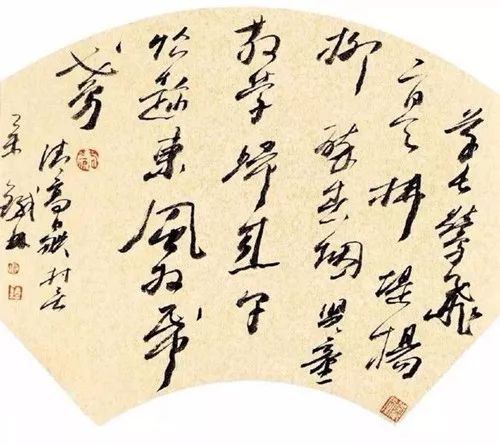 草長鶯飛
二月天拂堤楊
柳醉春烟兒童
散學歸來早
忙趁東風放紙
鳶
清高鼎村居